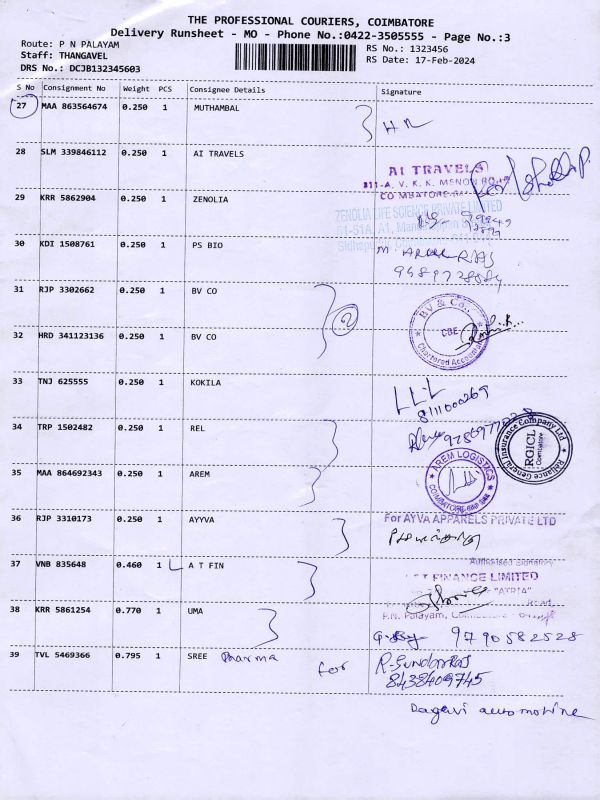 THE PROFESSIONAL COURIERS, COIMBATORE
Delivery Runsheet - MO - Phone No.:0422-3505555 - Page No.:3
Route: P N PALAYAM
Staff: THANGAVEL
DRS No.: DCJB132345603
RS No.: 1323456
RS Date: 17-Feb-2024
S No Consignment No Weight PCS Consignee Details Signature
27 MAA 863564674 0.250 1 MUTHAMBAL
28 SLM 339846112 0.250 1 AI TRAVELS
AI TRAVELS
311-A, V. K. K. MENON ROAD
29 KRR 5862904 0.250 1 ZENOLIA
ZENOLIA LIFE SCIENCE PRIVATE LIMITED
30 KDI 1508761 0.250 1 PS BIO
31 RJP 3302662 0.250 1 BV CO
2
BV & Co.,
CBE
Chartered Accountants
32 HRD 341123136 0.250 1 BV CO
33 TNJ 625555 0.250 1 KOKILA
8111000269
34 TRP 1502482 0.250 1 REL
Reliance General Insurance Company Ltd
RGICL
Coimbatore
35 MAA 864692343 0.250 1 AREM
AREM LOGISTICS
36 RJP 3310173 0.250 1 AYYVA
For AYVA APPARELS PRIVATE LTD
Authorised Signatory
37 VNB 835648 0.460 1 A T FIN
FINANCE LIMITED
"ATRIA"
P.N. Palayam,
38 KRR 5861254 0.770 1 UMA
9790582528
39 TVL 5469366 0.795 1 SREE Pharma for
R-SundarRAJ
8438409745
Dagavi automotine